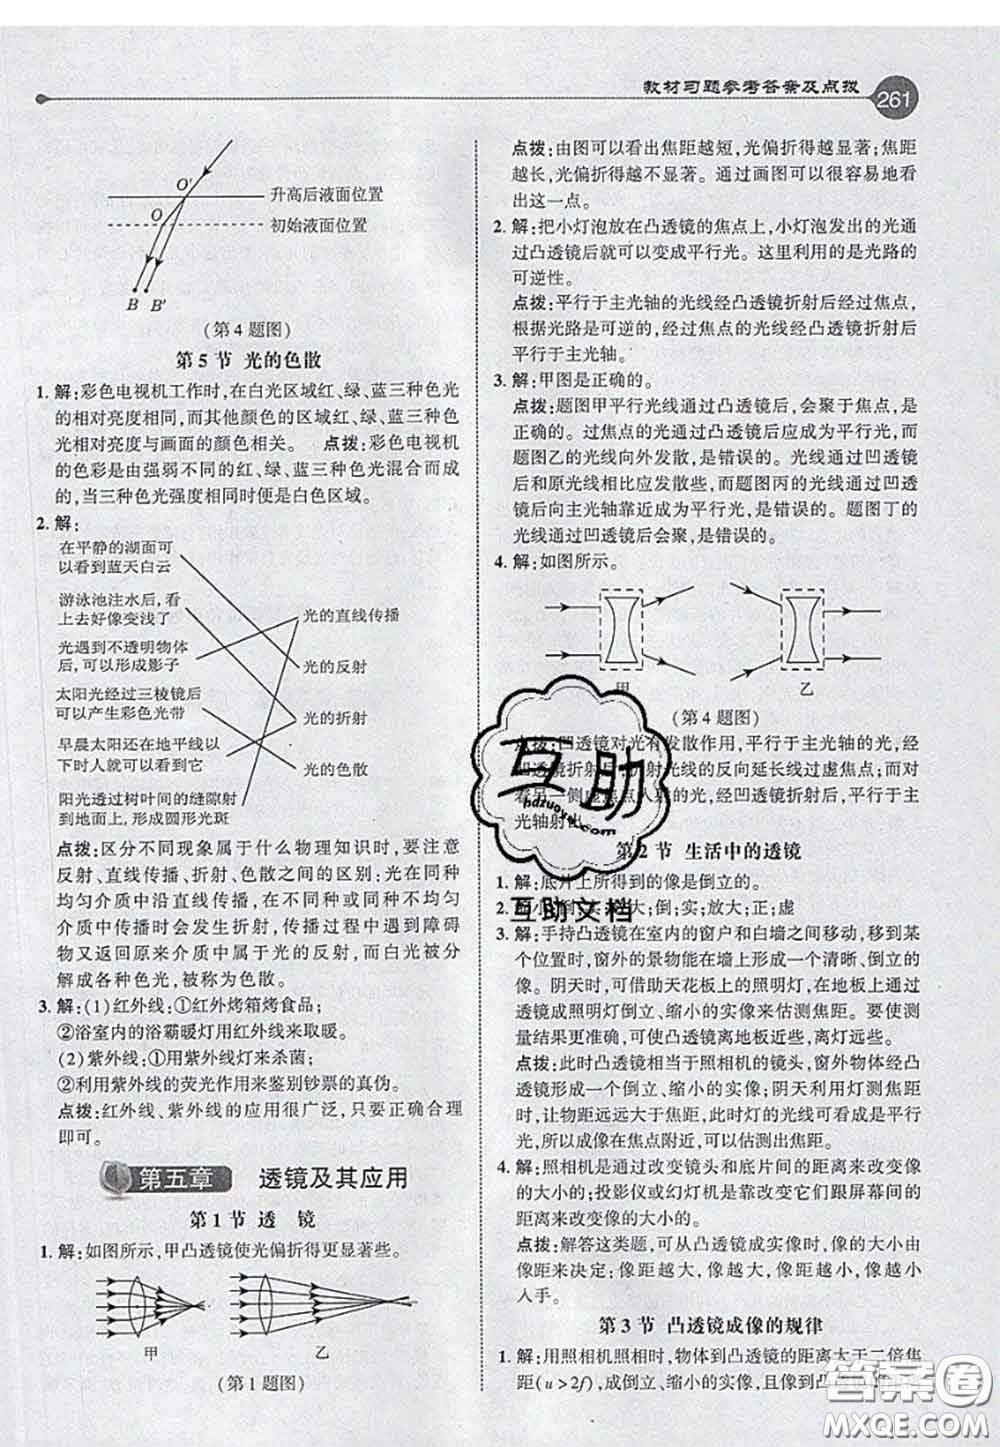 教材习题参考答案及点拨
261
O'
升高后液面位置
O
初始液面位置
B B'
(第4题图)
第5节 光的色散
1. 解:彩色电视机工作时,在白光区域红、绿、蓝三种色光
的相对亮度相同,而其他颜色的区域红、绿、蓝三种色
光相对亮度与画面的颜色相关。 点拨:彩色电视机
的色彩是由强弱不同的红、绿、蓝三种色光混合而成
的,当三种色光强度相同时便是白色区域。
2. 解:
在平静的湖面可
以看到蓝天白云
游泳池注水后,看
上去好像变浅了
光遇到不透明物体
后,可以形成影子
太阳光经过三棱镜后
可以产生彩色光带
早晨太阳还在地平线以
下时人就可以看到它
阳光透过树叶间的缝隙射
到地面上,形成圆形光斑
光的直线传播
光的反射
光的折射
光的色散
点拨:区分不同现象属于什么物理知识时,要注意
反射、直线传播、折射、色散之间的区别:光在同种
均匀介质中沿直线传播,在不同种或同种不均匀
介质中传播时会发生折射,传播过程中遇到障碍
物又返回原来介质中属于光的反射,而白光被分
解成各种色光,被称为色散。
3. 解:(1)红外线:①红外烤箱烤食品;
②浴室内的浴霸暖灯用红外线来取暖。
(2)紫外线:①用紫外线灯来杀菌;
②利用紫外线的荧光作用来鉴别钞票的真伪。
点拨:红外线、紫外线的应用很广泛,只要正确合理
即可。
第五章 透镜及其应用
第1节 透 镜
1. 解:如图所示,甲凸透镜使光偏折得更显著些。
甲 乙
(第1题图)
点拨:由图可以看出焦距越短,光偏折得越显著;焦距
越长,光偏折得越不显著。通过画图可以很容易地看
出这一点。
2. 解:把小灯泡放在凸透镜的焦点上,小灯泡发出的光通
过凸透镜后就可以变成平行光。这里利用的是光路的
可逆性。
点拨:平行于主光轴的光线经凸透镜折射后过焦点,
根据光路是可逆的,经过焦点的光线经凸透镜折射后
平行于主光轴。
3. 解:甲图是正确的。
点拨:题图甲平行光线通过凸透镜后,会聚于焦点,是
正确的。过焦点的光通过凸透镜后应成为平行光,而
题图乙的光线向外发散,是错误的。光线通过凹透镜
后和原光线相比应发散些,而题图丙的光线通过凹透
镜后向主光轴靠近成为平行光,是错误的。题图丁的
光线通过凹透镜后会聚,是错误的。
4. 解:如图所示。
甲 乙
(第4题图)
点拨:凹透镜对光有发散作用,平行于主光轴的光,经
凹透镜折射后,折射光线的反向延长线过虚焦点;而对
着另一侧虚焦点入射的光,经凹透镜折射后,平行于主
光轴射出。
第2节 生活中的透镜
1. 解:底片上所得到的像是倒立的。
2. 缩小;倒;实;放大;倒;实;放大;正;虚
3. 解:手持凸透镜在室内的窗户和白墙之间移动,移到某
个位置时,窗外的景物能在墙上形成一个清晰、倒立的
像。阴天时,可借助天花板上的照明灯,在地板上通过
透镜成照明灯倒立、缩小的实像来估测焦距。要使测
量结果更准确,可使凸透镜离地板近些,离灯远些。
点拨:此时凸透镜相当于照相机的镜头,窗外物体经凸
透镜形成一个倒立、缩小的实像;阴天利用灯测焦距
时,让物距远远大于焦距,此时灯的光线可看成是平行
光,所以成像在焦点附近,可以估测出焦距。
4. 解:照相机是通过改变镜头和底片间的距离来改变像
的大小的;投影仪或幻灯机是靠改变它们跟屏幕间的
距离来改变像的大小的。
点拨:解答这类题,可从凸透镜成实像时,像的大小由
像距来决定:像距越大,像越大,像距越小,像越小
入手。
第3节 凸透镜成像的规律
1. 解:用照相机照相时,物体到凸透镜的距离大于二倍焦
距(u>2f),成倒立、缩小的实像,像到凸透镜的距离
互助
hdzuoye.com
互助文档
答案圈
MXQE.COM